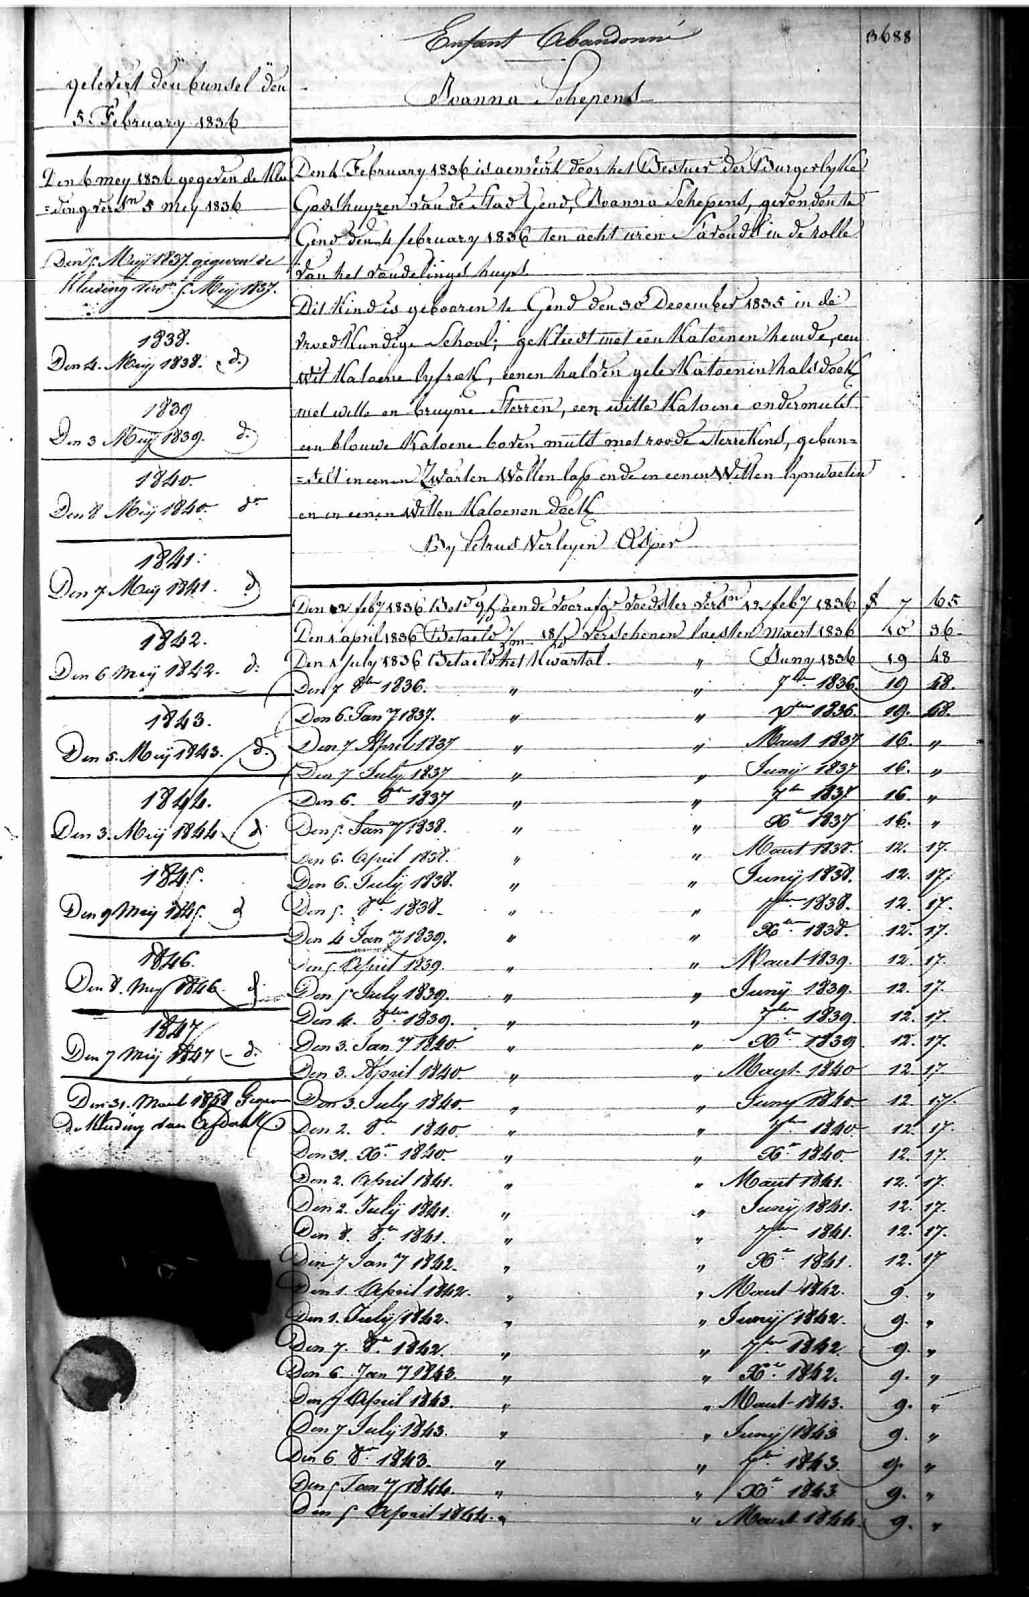 Enfant Abandonné
3688
Joanna Schepens
gelevert den bunsel den
5 February 1836
Den 6 mey 1836 gegeven de klee
=ding versn 5 mey 1836
Den 5. Meij 1837. gegeven de
Kleeding versn. 5. Meij 1837.
1838.
Den 4. Meij 1838. d.
1839
Den 3 Meij 1839. d.
1840
Den 8 Meij 1840. do
1841.
Den 7 Meij 1841. d.
1842.
Den 6 Meij 1842. d.
1843.
Den 5. Meij 1843. d.
1844.
Den 3. Meij 1844 d.
1845.
Den 9 Meij 1845. d
1846.
Den 8. Meij 1846. d.
1847
Den 7 Meij 1847 - d.
Den 31. Maart 1858 Gegeven
de Kleeding van
Den 4 February 1836 is aenveirt door het Bestier der Burgerlyke
Godshuyzen van de Stad Gend, Joanna Schepens, gevonden te
Gend den 4 february 1836 ten acht uren s'avonds in de rolle
van het vondelingshuys
Dit kind is gebooren te Gend den 30 December 1835 in de
vroedkundige School; gekleedt met een katoenen hemde, een
wit katoene lyfrok, eenen halven gele katoenen halsdoek
met witte en bruyne sterren, een witte katoene ondermuts
een blauwe katoene boven muts met roode sterrekens, gebun=
=delt in eenen zwarten wollen lap ende in eenen witten lynwaetin
en in eenen witten katoenen doek
By Petrus Verleyen Asper
Den 12 feby 1836 Betd aen de voorafge voedster versn 12 feby 1836 7 65
Den 1 april 1836 Betaeld verschenen laesten maert 1836 10 36
Den 1 july 1836 Betaeld het kwartal. " Juny 1836 19 48
Den 7 8ber 1836. " " 7ber 1836. 19 48.
Den 6. Jany 1837. " " Xber 1836. 19. 48.
Den 7 April 1837 " " Maart 1837 16. "
Den 7 July 1837 " " Junij 1837 16. "
Den 6. 8ber 1837 " " 7ber 1837 16. "
Den 5. Jany 1838. " " Xber 1837 16. "
Den 6. April 1838. " " Maart 1838. 12. 17.
Den 6. Julij 1838. " " Junij 1838. 12. 17.
Den 5. 8ber 1838. " " 7ber 1838. 12. 17.
Den 4 Jany 1839. " " Xber 1838. 12. 17.
Den 5 April 1839. " " Maart 1839. 12. 17.
Den 5 July 1839. " " Junij 1839. 12. 17.
Den 4. 8ber 1839. " " 7ber 1839. 12. 17.
Den 3. Jany 1840 " " Xber 1839 12. 17.
Den 3. April 1840 " " Maart 1840 12. 17
Den 3. July 1840. " " Juny 1840. 12 17.
Den 2. 8ber 1840. " " 7ber 1840 12. 17.
Den 31. Xber 1840 " " Xber 1840. 12. 17.
Den 2. April 1841. " " Maart 1841. 12. 17.
Den 2. Julij 1841. " " Junij 1841. 12. 17.
Den 8. 8ber 1841. " " 7ber 1841. 12. 17.
Den 7 Jany 1842. " " Xber 1841. 12. 17
Den 1. April 1842. " " Maart 1842. 9. "
Den 1. Julij 1842. " " Junij 1842. 9. "
Den 7. 8ber 1842. " " 7ber 1842. 9. "
Den 6 Jany 1843. " " Xber 1842. 9. "
Den 7 April 1843. " " Maart 1843. 9. "
Den 7 Julij 1843. " " Junij 1843 9. "
Den 6 8ber 1843. " " 7ber 1843. 9. "
Den 5 Jany 1844. " " Xber 1843 9. "
Den 5 April 1844. " " Maart 1844. 9. "